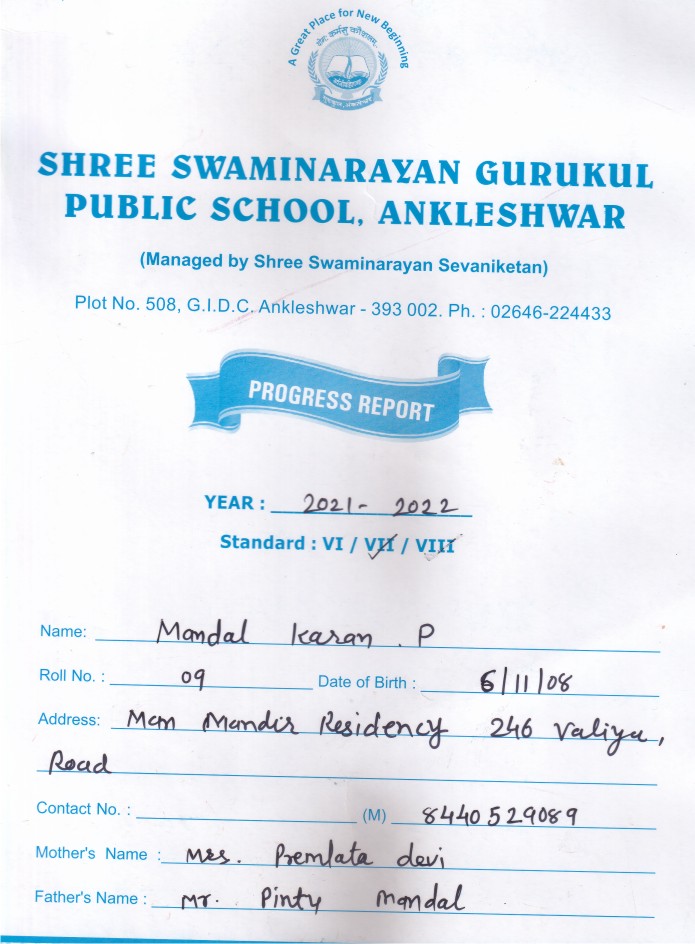 A Great Place for New Beginning
योगः कर्मसु कौशलम्
SHREE SWAMINARAYAN GURUKUL
PUBLIC SCHOOL, ANKLESHWAR
(Managed by Shree Swaminarayan Sevaniketan)
Plot No. 508, G.I.D.C. Ankleshwar - 393 002. Ph. : 02646-224433
PROGRESS REPORT
YEAR : 2021- 2022
Standard : VI / VII / VIII
Name: Mandal Karan . P
Roll No. : 09 Date of Birth : 6/11/08
Address: Mam Mandir Residency 246 Valiya,
Road
Contact No. : (M) 8440529089
Mother's Name : Mrs. Premlata devi
Father's Name : Mr. Pinty Mandal